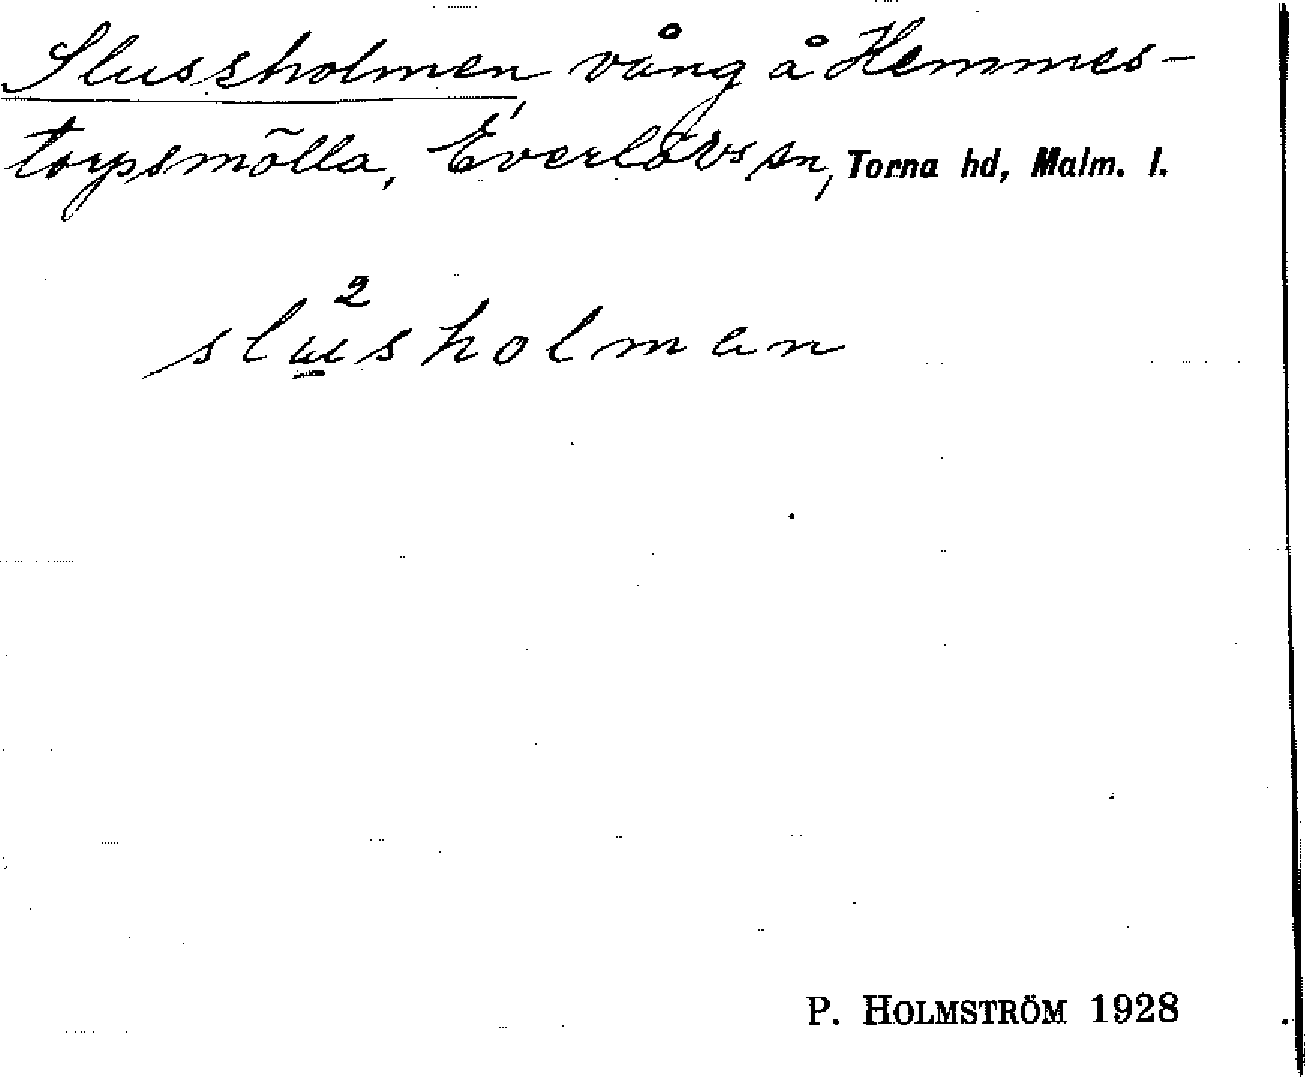 Slussholmen, vång å Hemmes-
torpsmölla, Everlövs sn, Torna hd, Malm. l.
2
slusholman
P. HOLMSTRÖM 1928